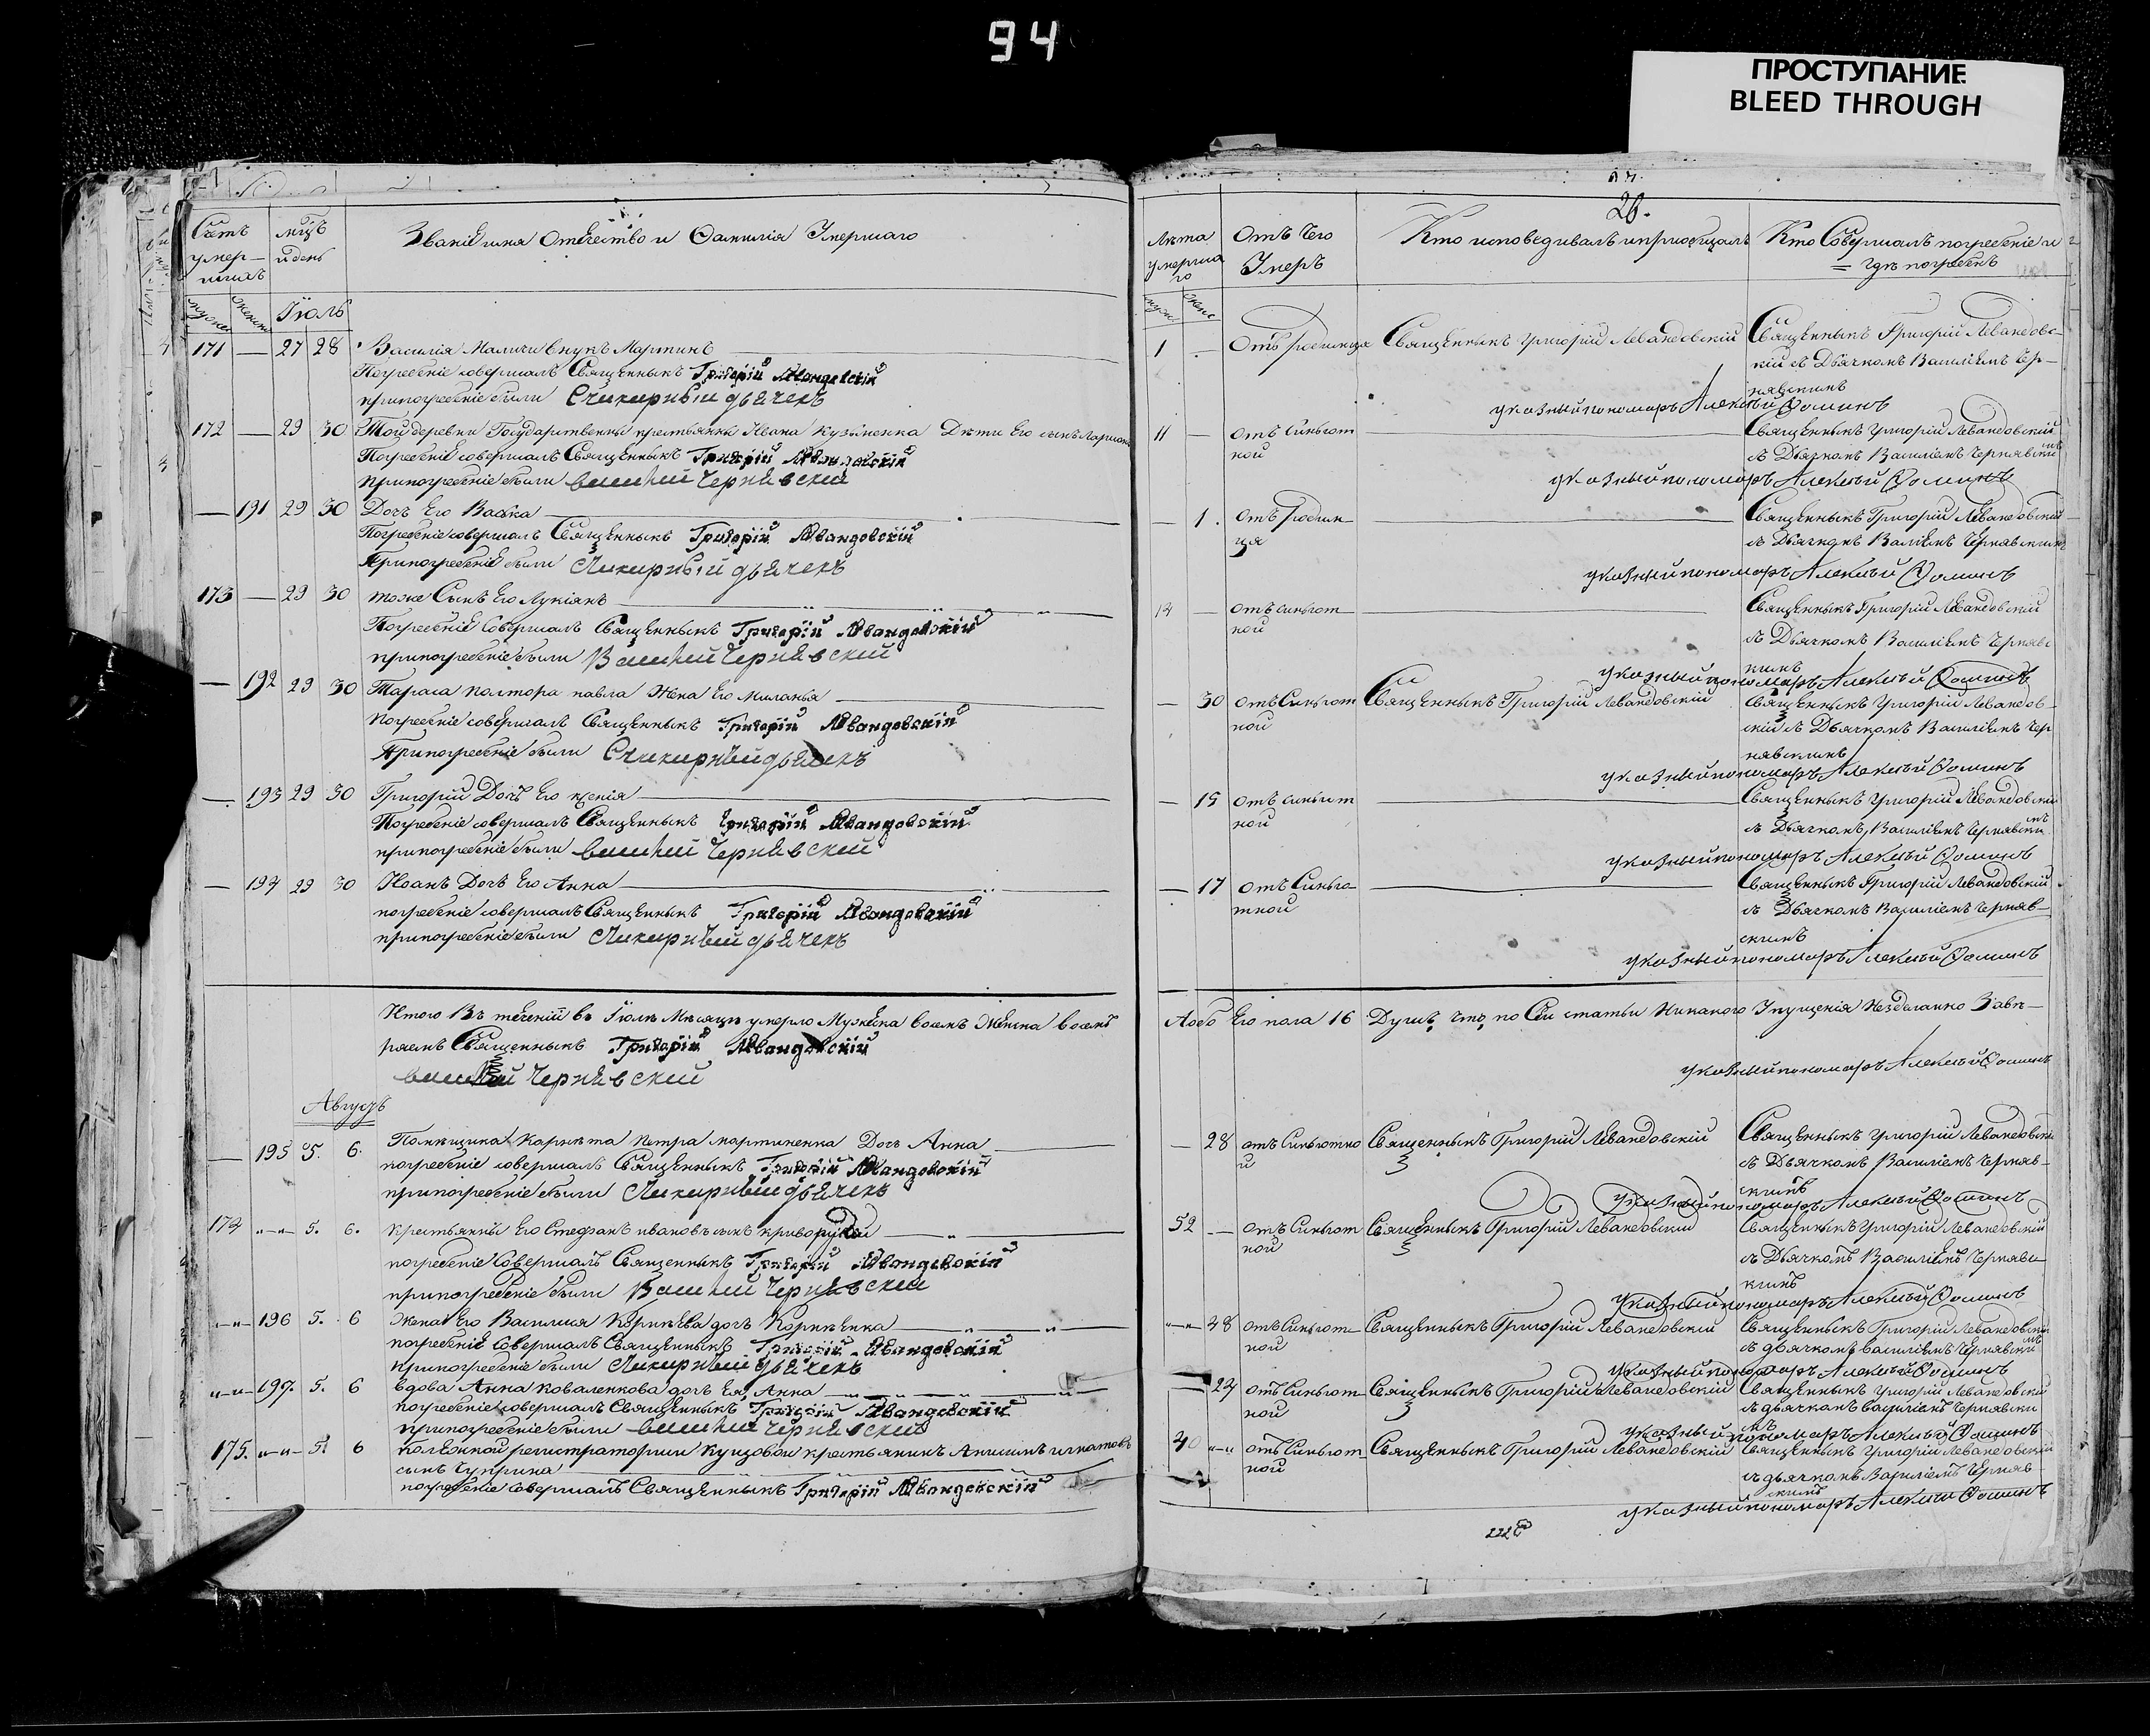 94
ПРОСТУПАНИЕ
BLEED THROUGH
Счетъ умер- шихъ
мцъ и день
Званіе имя Отечество и Фамилія Умершаго
мужеск женск Іюль
171 — 27 28 Василія Малича внукъ Мартинъ
Погребеніе совершалъ Священникъ Григорій Левандовскій
при погребеніе были дьячекъ
172 — 29 30 Той деревни Государственны крестьянки Ивана Кузьменка Дети Его сынъ Ларион
Погребеніе совершалъ Священникъ Григорій Левандовскій
при погребеніе были Василий Чернявский
— 191 29 30 Дочъ Его Васка
Погребеніе совершалъ Священникъ Григорій Левандовскій
При погребеніе были дьячекъ
173 — 29 30 тоже Сынъ Его Лукіянъ
Погребеніе Совершалъ Священникъ Григорій Левандовскій
при погребеніе были Василий Чернявский
— 192 29 30 Тараса полтора павла Жена Его Миланія
Погребеніе совершалъ Священникъ Григорій Левандовскій
При погребеніе были дьячекъ
— 193 29 30 Григорій Дочъ Его ксенія
Погребеніе совершалъ Священникъ Григорій Левандовскій
при погребеніе были Василий Чернявский
— 194 29 30 Иоанъ Дочъ Его Анна
погребеніе совершалъ Священникъ Григорій Левандовскій
при погребеніе были дьячекъ
Итого Въ теченіи въ Іюлѣ Мѣсяцѣ умерло Мужеска восемъ Женска восемъ
ряемъ Священникъ Григорій Левандовскій
Василий Чернявский
Августъ
— 195 5. 6. Помѣщика Карнѣта петра мартиненка Дочъ Анна
погребеніе совершалъ Священникъ Григорій Левандовскій
при погребеніе были дьячекъ
174 „-„ 5. 6. крестьянки Его Стефанъ ивановъ сынъ криворучко
погребеніе Совершалъ Священникъ Григорій Левандовскій
при погребеніе были Василий Чернявский
„-„ 196 5. 6 Жена Его Василия Корнѣева дочъ Корнѣенка
погребеніе Совершалъ Священникъ Григорій Левандовскій
при погребеніе были дьячекъ
„-„ 197. 5. 6 вдова Анна коваленкова дочъ Ея Анна
погребеніе совершалъ Священникъ Григорій Левандовскій
при погребеніе были Василий Чернявский
175. „-„ 5. 6 колежкой регистраторши крестьянинъ Анисимъ игнатовъ
сынъ Чуприна
погребеніе Совершалъ Священникъ Григорій Левандовскій
28.
Лѣта умерша го
Отъ Чего Умеръ
Кто исповедивалъ и приобщалъ
Кто Совершалъ погребеніе и
гдѣ погребенъ
1 — Отъ родимца Священникъ Григорій Левандовскій Священникъ Григорій Левандовс-
кій съ Дьячкомъ Василіемъ Чер-
нявскимъ
указный пономаръ Алексѣй Фоминъ
11 — отъ Синьготной — Священникъ Григорій Левандовскій
съ Дьячкомъ Василіемъ Чернявскимъ
указный пономаръ Алексѣй Фоминъ
— 1. отъ родимца — Священникъ Григорій Левандовскій
съ Дьячкомъ Василіемъ Чернявскимъ
указный пономаръ Алексѣй Фоминъ
14 — отъ синьготной — Священникъ Григорій Левандовскій
съ Дьячкомъ Василіемъ Чернявс
кимъ
указный пономаръ Алексѣй Фоминъ
— 30 отъ Синьготной Священникъ Григорій Левандовскій Священникъ Григорій Левандов-
скій съ Дьячкомъ Василіемъ Чер
нявскимъ
указный пономаръ Алексѣй Фоминъ
— 15 отъ синьготной — Священникъ Григорій Левандовскій
съ Дьячкомъ Василіемъ Чернявскимъ
указный пономаръ Алексѣй Фоминъ
— 17 отъ Синьготной — Священникъ Григорій Левандовскій
съ Дьячкомъ Василіемъ Черняв-
скимъ
указный пономаръ Алексѣй Фоминъ
Обо Его пола 16 Душъ, что по Сей статьи Никакого Упущенія Незделанно Завѣ-
указный пономаръ Алексѣй Фоминъ
— 28 отъ Синьготной Священникъ Григорій Левандовскій Священникъ Григорій Левандовскі
съ Дьячкомъ Василіемъ Черняв-
скимъ
указный пономаръ Алексѣй Фоминъ
52 — отъ Синьготной Священникъ Григорій Левандовскій Священникъ Григорій Левандовскій
съ Дьячкомъ Василіемъ Чернявс
кимъ
указный пономаръ Алексѣй Фоминъ
„-„ 48 отъ Синьготной Священникъ Григорій Левандовскій Священникъ Григорій Левандовскій
съ дьячкомъ Василіемъ Чернявскимъ
указный пономаръ Алексѣй Фоминъ
— 24 отъ Синьготной Священникъ Григорій Левандовскій Священникъ Григорій Левандовскій
съ дьячкомъ Василіемъ Чернявски
мъ
указный пономаръ Алексѣй Фоминъ
40 „-„ отъ Синьготной Священникъ Григорій Левандовскій Священникъ Григорій Левандовскій
съ дьячкомъ Василіемъ Черняв-
скимъ
указный пономаръ Алексѣй Фоминъ